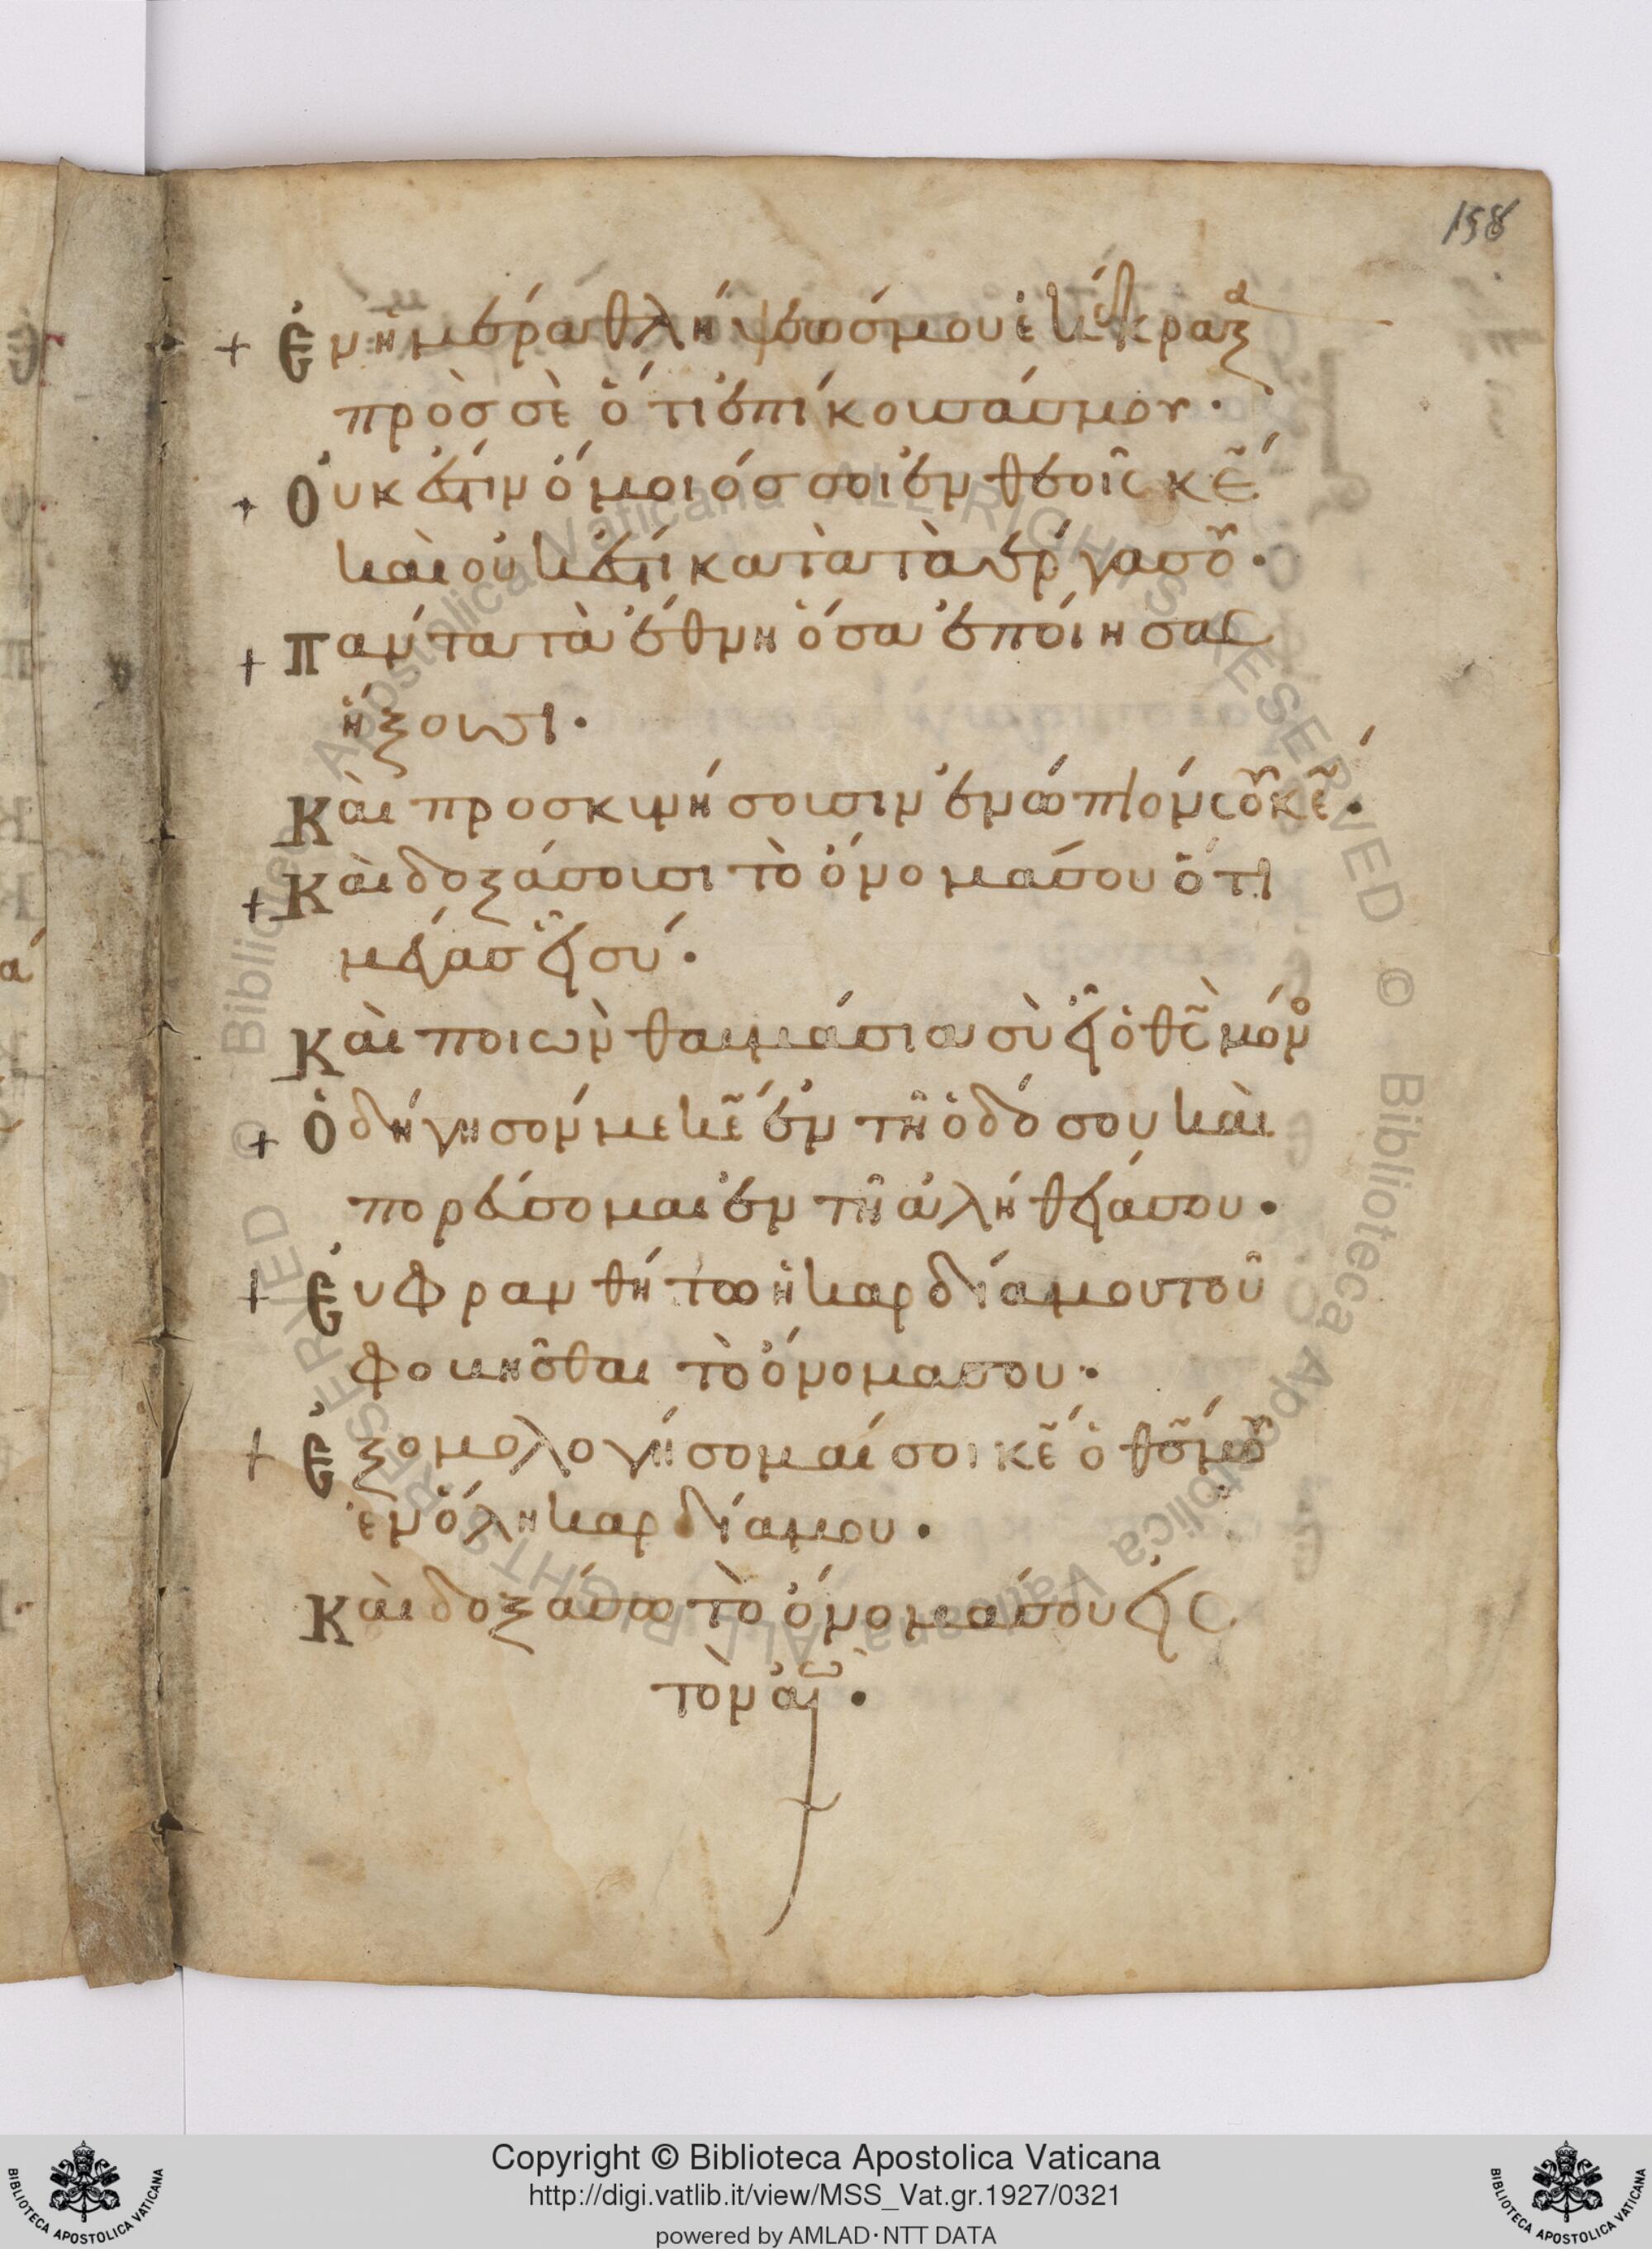 158
+ Ἐν ἡμέρα θλήψεώσμου ἐκέκραξα
πρὸσ σὲ ὅτι ἐπίκουσάσμου·
+ Οὐκ ἔστιν ὅμοιόσ σοι ἐν θεοῖς κε̃
καὶ οὐκ ἔστι κατὰ τὰ ἔργα σοῦ·
+ Πάντα τὰ ἔθνη ὅσα ἐποίησας
ἥξουσι·
Καὶ προσκυνήσουσιν ἐνώπιόν σοῦ κε̃·
+ Καὶ δοξάσουσι τὸ ὄνομάσου ὅτι
μέγασ εἶ σύ·
Καὶ ποιῶν θαυμάσια σὺ εἶ ὁ θς̃ μόνο
+ Ὁδήγησόν με κε̃ ἐν τῆ ὁδό σου καὶ
πορεύσομαι ἐν τῆ ἀληθείάσου·
+ Εὐφρανθήτω ἡ καρδίαμου τοῦ
φοβηῖσθαι τὸ ὄνομασου·
+ Ἐξομολογήσομαί σοι κε̃ ὁ θσ̃ μοῦ
ἐν ὅλη καρδίαμου·
Καὶ δοξάσω τὸ ὄνομάσου εἰς
τὸν αἰῶ·
Copyright © Biblioteca Apostolica Vaticana
http://digi.vatlib.it/view/MSS_Vat.gr.1927/0321
powered by AMLAD·NTT DATA
BIBLIOTECA APOSTOLICA VATICANA
BIBLIOTECA APOSTOLICA VATICANA